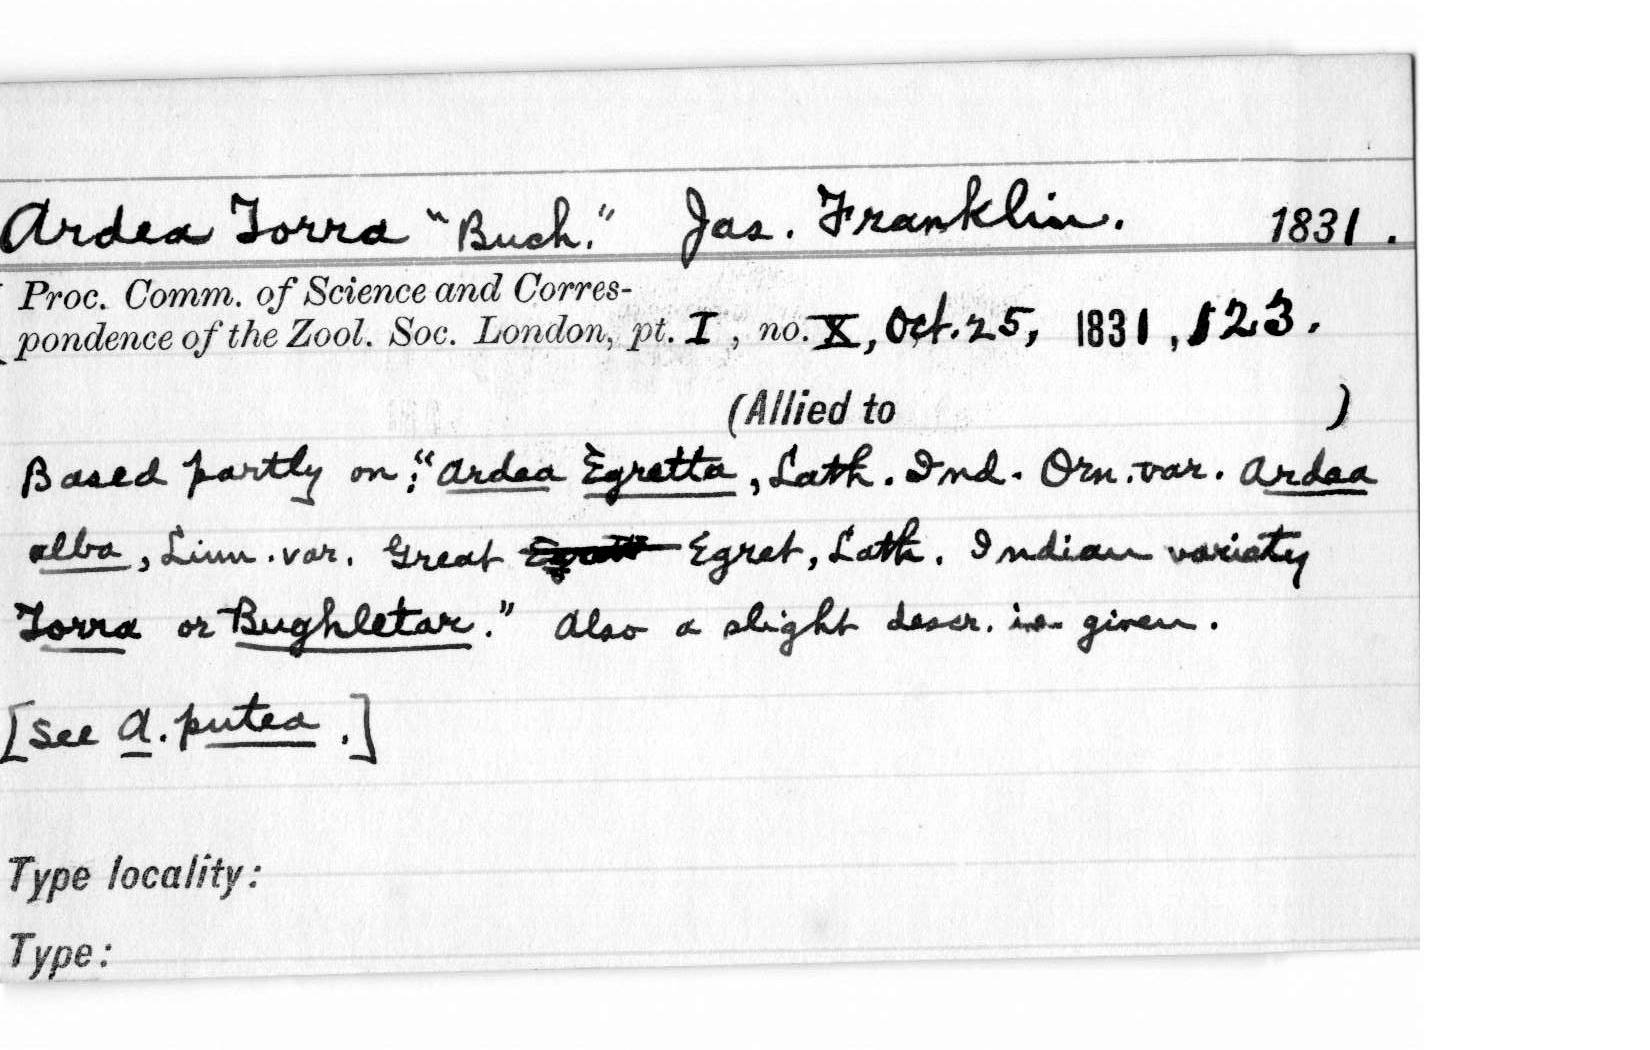 Ardea Torra "Buch." Jas. Franklin. 1831.
Proc. Comm. of Science and Corres-
pondence of the Zool. Soc. London, pt. I, no. X, Oct. 25, 1831, 123.
(Allied to )
Based partly on: "Ardea Egretta, Lath. Ind. Orn. var. Ardea
alba, Linn. var. Great Egret, Lath. Indian variety
Torra or Bughletar." Also a slight descr. is given.
[See A. putea.]
Type locality:
Type: